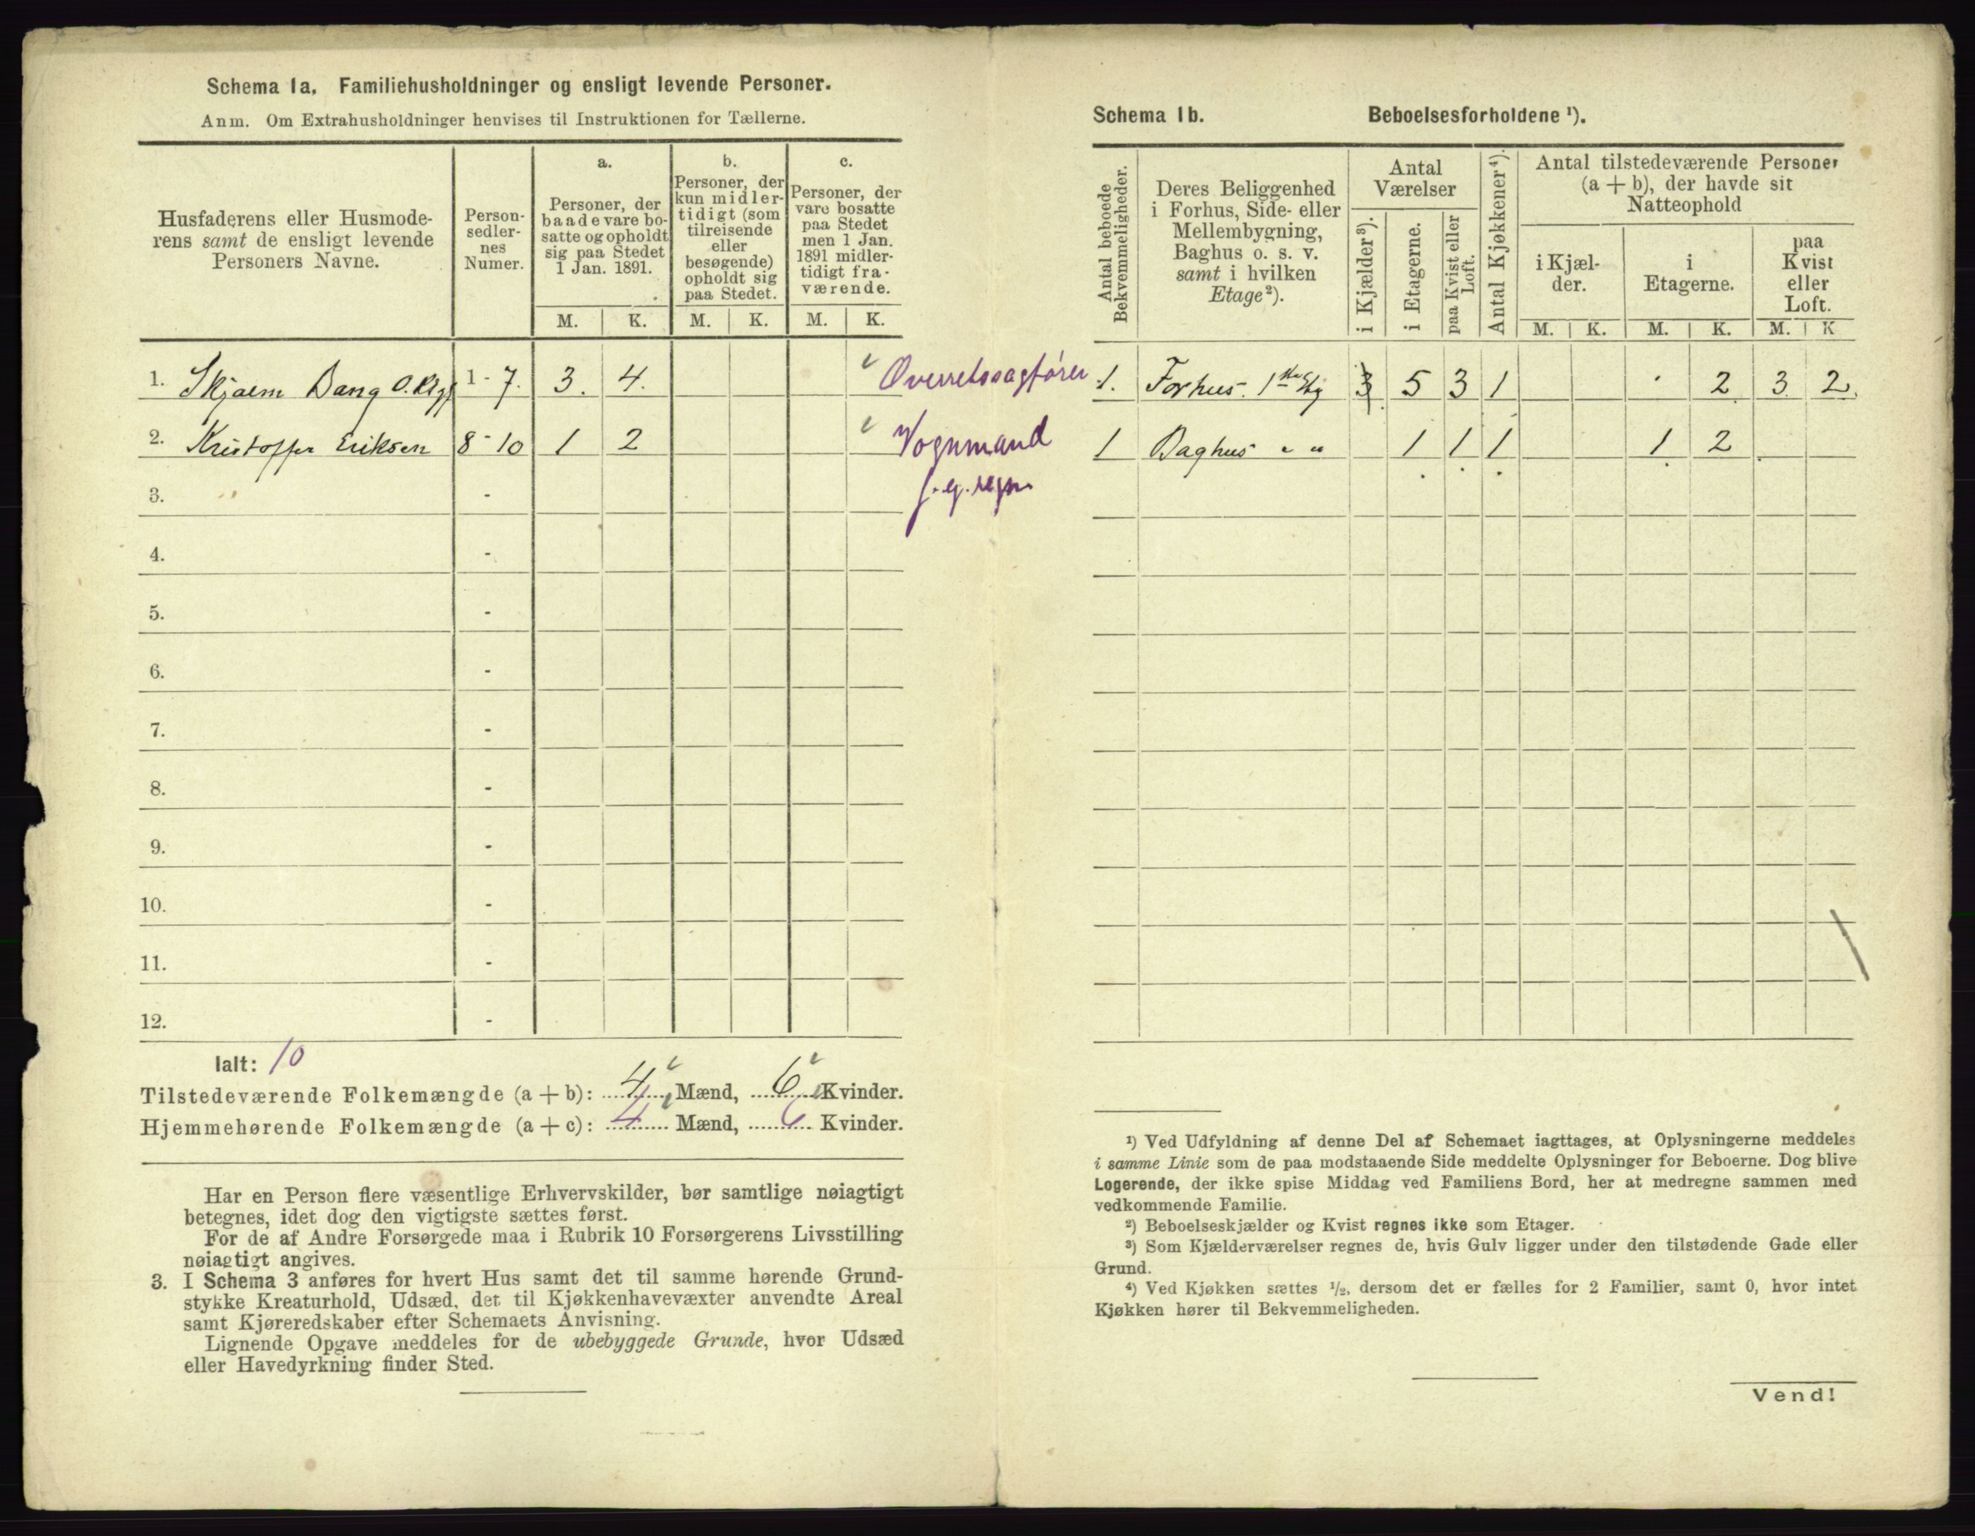 Schema 1a. Familiehusholdninger og ensligt levende Personer.
Anm. Om Extrahusholdninger henvises til Instruktionen for Tællerne.
Husfaderens eller Husmode-
rens samt de ensligt levende
Personers Navne.
Person-
sedler-
nes
Numer.
a.
Personer, der
baade vare bo-
satte og opholdt
sig paa Stedet
1 Jan. 1891.
b.
Personer, der
kun midler-
tidigt (som
tilreisende
eller
besøgende)
opholdt sig
paa Stedet.
c.
Personer, der
vare bosatte
paa Stedet
men 1 Jan.
1891 midler-
tidigt fra-
værende.
M. K. M. K. M. K.
1. Skjaem Bang 1 - 7. 3. 4. Overretssagfører
2. Kristoffer Eriksen 8 - 10 1 2 Vognmand
3. -
4. -
5. -
6. -
7. -
8. -
9. -
10. -
11. -
12. -
Ialt: 10
Tilstedeværende Folkemængde (a + b): 4 Mænd, 6 Kvinder.
Hjemmehørende Folkemængde (a + c): 4 Mænd, 6 Kvinder.
Har en Person flere væsentlige Erhvervskilder, bør samtlige nøiagtigt
betegnes, idet dog den vigtigste sættes først.
For de af Andre Forsørgede maa i Rubrik 10 Forsørgerens Livsstilling
nøiagtigt angives.
3. I Schema 3 anføres for hvert Hus samt det til samme hørende Grund-
stykke Kreaturhold, Udsæd, det til Kjøkkenhavevæxter anvendte Areal
samt Kjøreredskaber efter Schemaets Anvisning.
Lignende Opgave meddeles for de ubebyggede Grunde, hvor Udsæd
eller Havedyrkning finder Sted.
Schema 1b. Beboelsesforholdene ¹).
Antal beboede
Bekvemmeligheder.
Deres Beliggenhed
i Forhus, Side- eller
Mellembygning,
Baghus o. s. v.
samt i hvilken
Etage²).
Antal
Værelser
i Kjælder³).
i Etagerne.
paa Kvist eller
Loft.
Antal Kjøkkener⁴).
Antal tilstedeværende Personer
(a + b), der havde sit
Natteophold
i Kjæl-
der.
i
Etagerne.
paa
Kvist
eller
Loft.
M. K. M. K. M. K
1. Forhus. 1ste Etg 3 5 3 1 2 3 2
1 Baghus " " 1 1 1 1 2
¹) Ved Udfyldning af denne Del af Schemaet iagttages, at Oplysningerne meddeles
i samme Linie som de paa modstaaende Side meddelte Oplysninger for Beboerne. Dog blive
Logerende, der ikke spise Middag ved Familiens Bord, her at medregne sammen med
vedkommende Familie.
²) Beboelseskjælder og Kvist regnes ikke som Etager.
³) Som Kjælderværelser regnes de, hvis Gulv ligger under den tilstødende Gade eller
Grund.
⁴) Ved Kjøkken sættes ½, dersom det er fælles for 2 Familier, samt 0, hvor intet
Kjøkken hører til Bekvemmeligheden.
Vend!